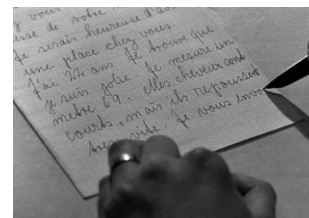 vous
esse de votre
Je serais heureuse d'a
une place chez vous.
J'ai 22 ans. Je trouve que
je suis jolie. Je mesure un
mètre 69. Mes cheveux sont
courts, mais ils repoussent
très vite. Je vous envo